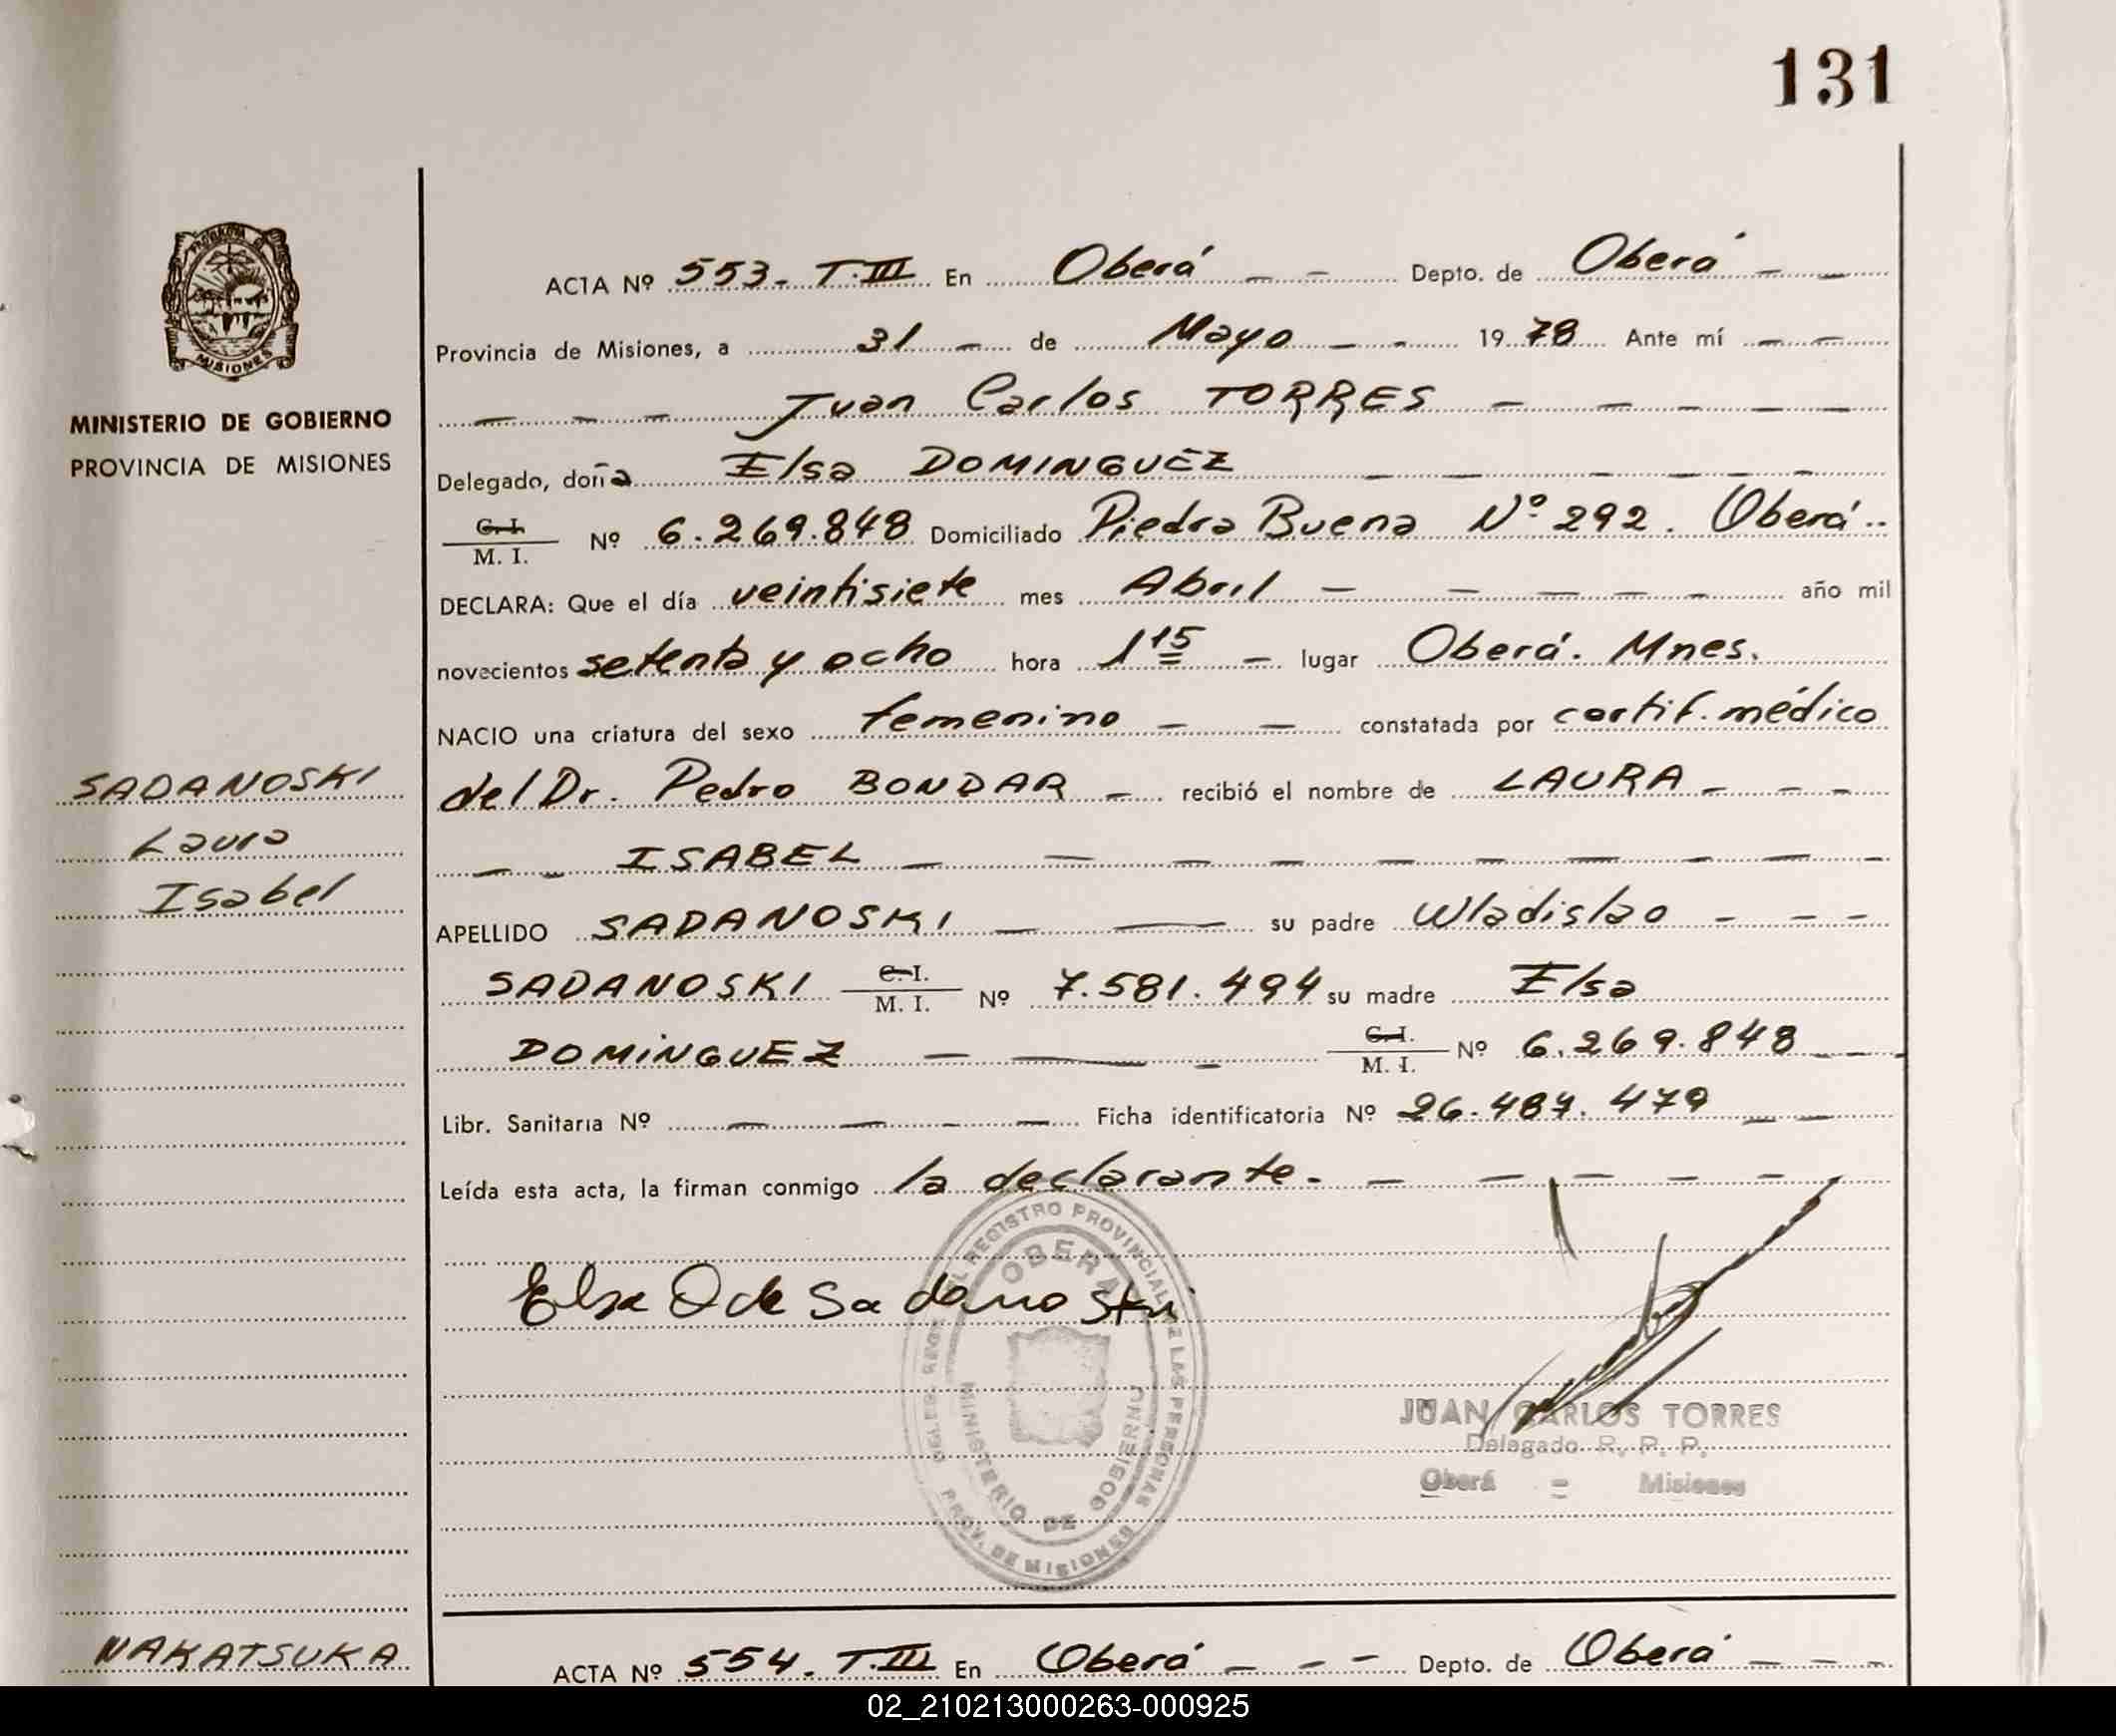 131
PROVINCIA DE
MISIONES
MINISTERIO DE GOBIERNO
PROVINCIA DE MISIONES
SADANOSKI
Laura
Isabel
ACTA Nº 553- T.III En Oberá — — Depto. de Oberá — —
Provincia de Misiones, a 31 — de Mayo — - 1978 Ante mí — —
— — — Juan Carlos TORRES — — — — —
Delegado, doña Elsa DOMINGUEZ — — — — — —
C. I. / M. I. Nº 6.269.848 Domiciliado Piedra Buena Nº 292. Oberá..
DECLARA: Que el día veintisiete mes Abril — — — — — año mil
novecientos setenta y ocho hora 1 15 — lugar Oberá. Mnes.
NACIO una criatura del sexo femenino — — constatada por certif. médico
del Dr. Pedro BONDAR — recibió el nombre de LAURA — — —
— — ISABEL — — — — — — — — — —
APELLIDO SADANOSKI — — su padre Wladislao — — —
SADANOSKI C. I. / M. I. Nº 7.581.494 su madre Elsa
DOMINGUEZ — — — C. I. / M. I. Nº 6.269.848 — —
Libr. Sanitaria Nº — — — — Ficha identificatoria Nº 26.487.479 — —
Leída esta acta, la firman conmigo la declarante. — — — — —
Elsa D de Sadanoski
REGISTRO PROVINCIAL DE LAS PERSONAS
OBERA
MINISTERIO DE GOBIERNO
PROV. DE MISIONES
JUAN CARLOS TORRES
Delegado R. P. P.
Oberá = Misiones
NAKATSUKA
ACTA Nº 554. T.III En Oberá — — — Depto. de Oberá — — —
02_210213000263-000925